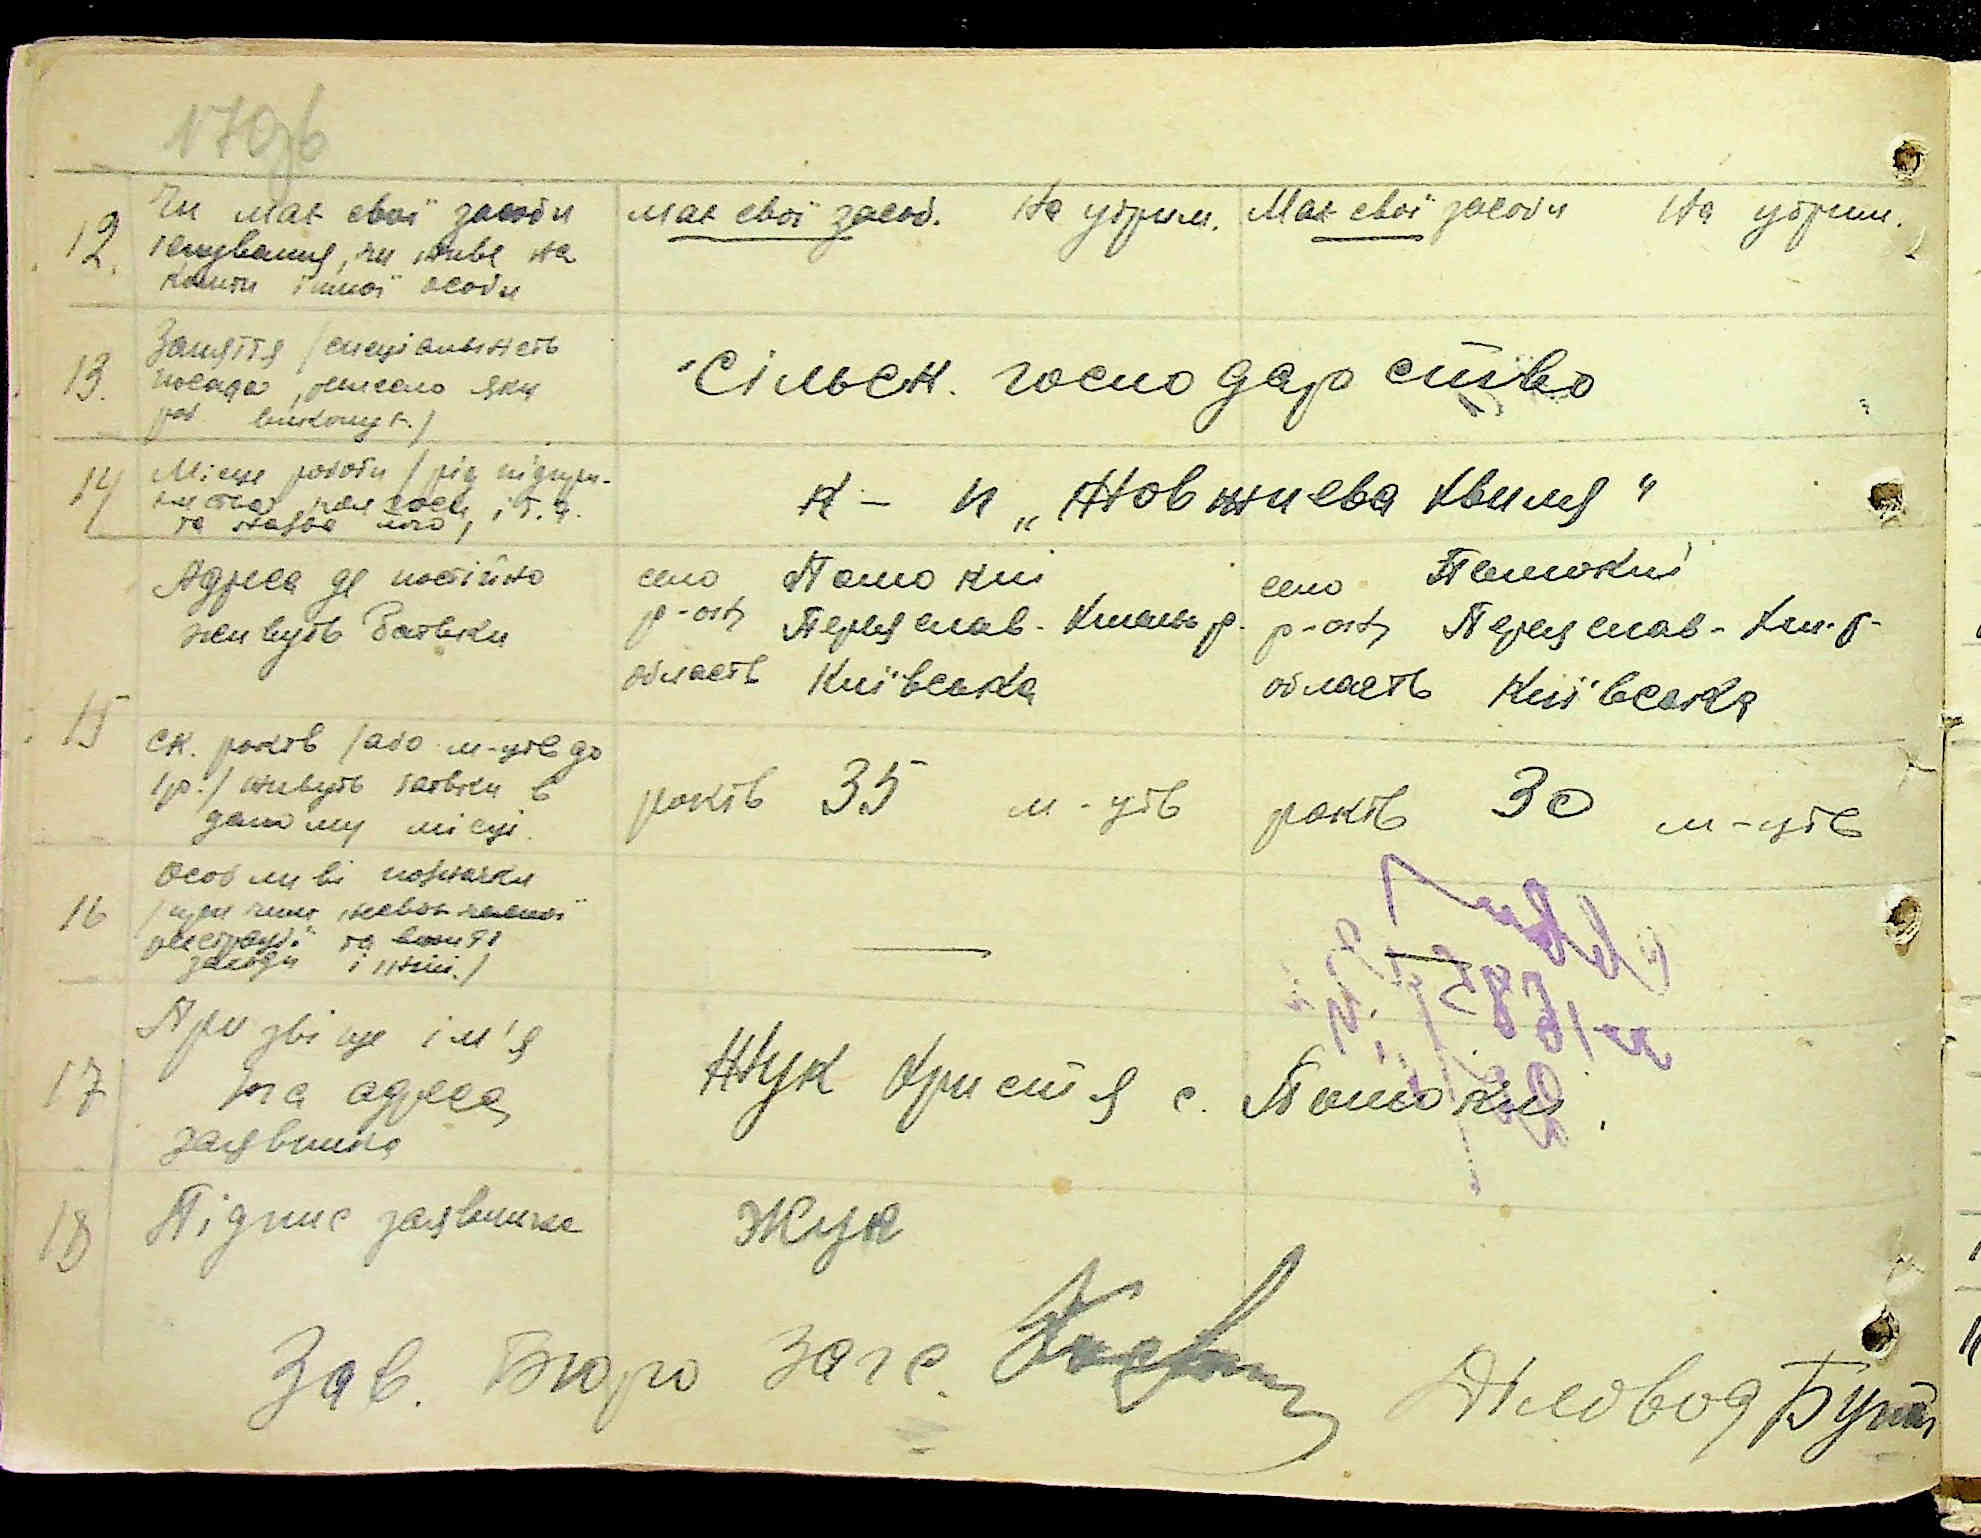 170зв
12. Чи має свої засоби існування, чи живе на кошти іншої особи
має свої засоб. На утрим.
Має свої засоби На утрим.
13. Заняття /спеціальність посада, ремесло яку роб. виконує/
Сільск. господарство
14 Місце роботи /рід підпри-
та назва його/
к-п „Жовтнева Хвиля"
15 Адреса де постійно живуть батьки
село Помокли
р-он Переяслав-Хмель р.
область Київська
село Помокли
р-он Переяслав-Хм. р-
область Київська
ск. років /або м-ців до 1р./ живуть батьки в даному місці.
років 35 м-ців
років 30 м-ців
16 Особливі позначки /причини невчасної реєстрації та вжиті заходи і інші./
—
17 Призвіще ім'я та адреса заявника
Жук Христя с. Помокли.
18 Підпис заявника
Жук
Зав. Бюро Загс.
Діловод